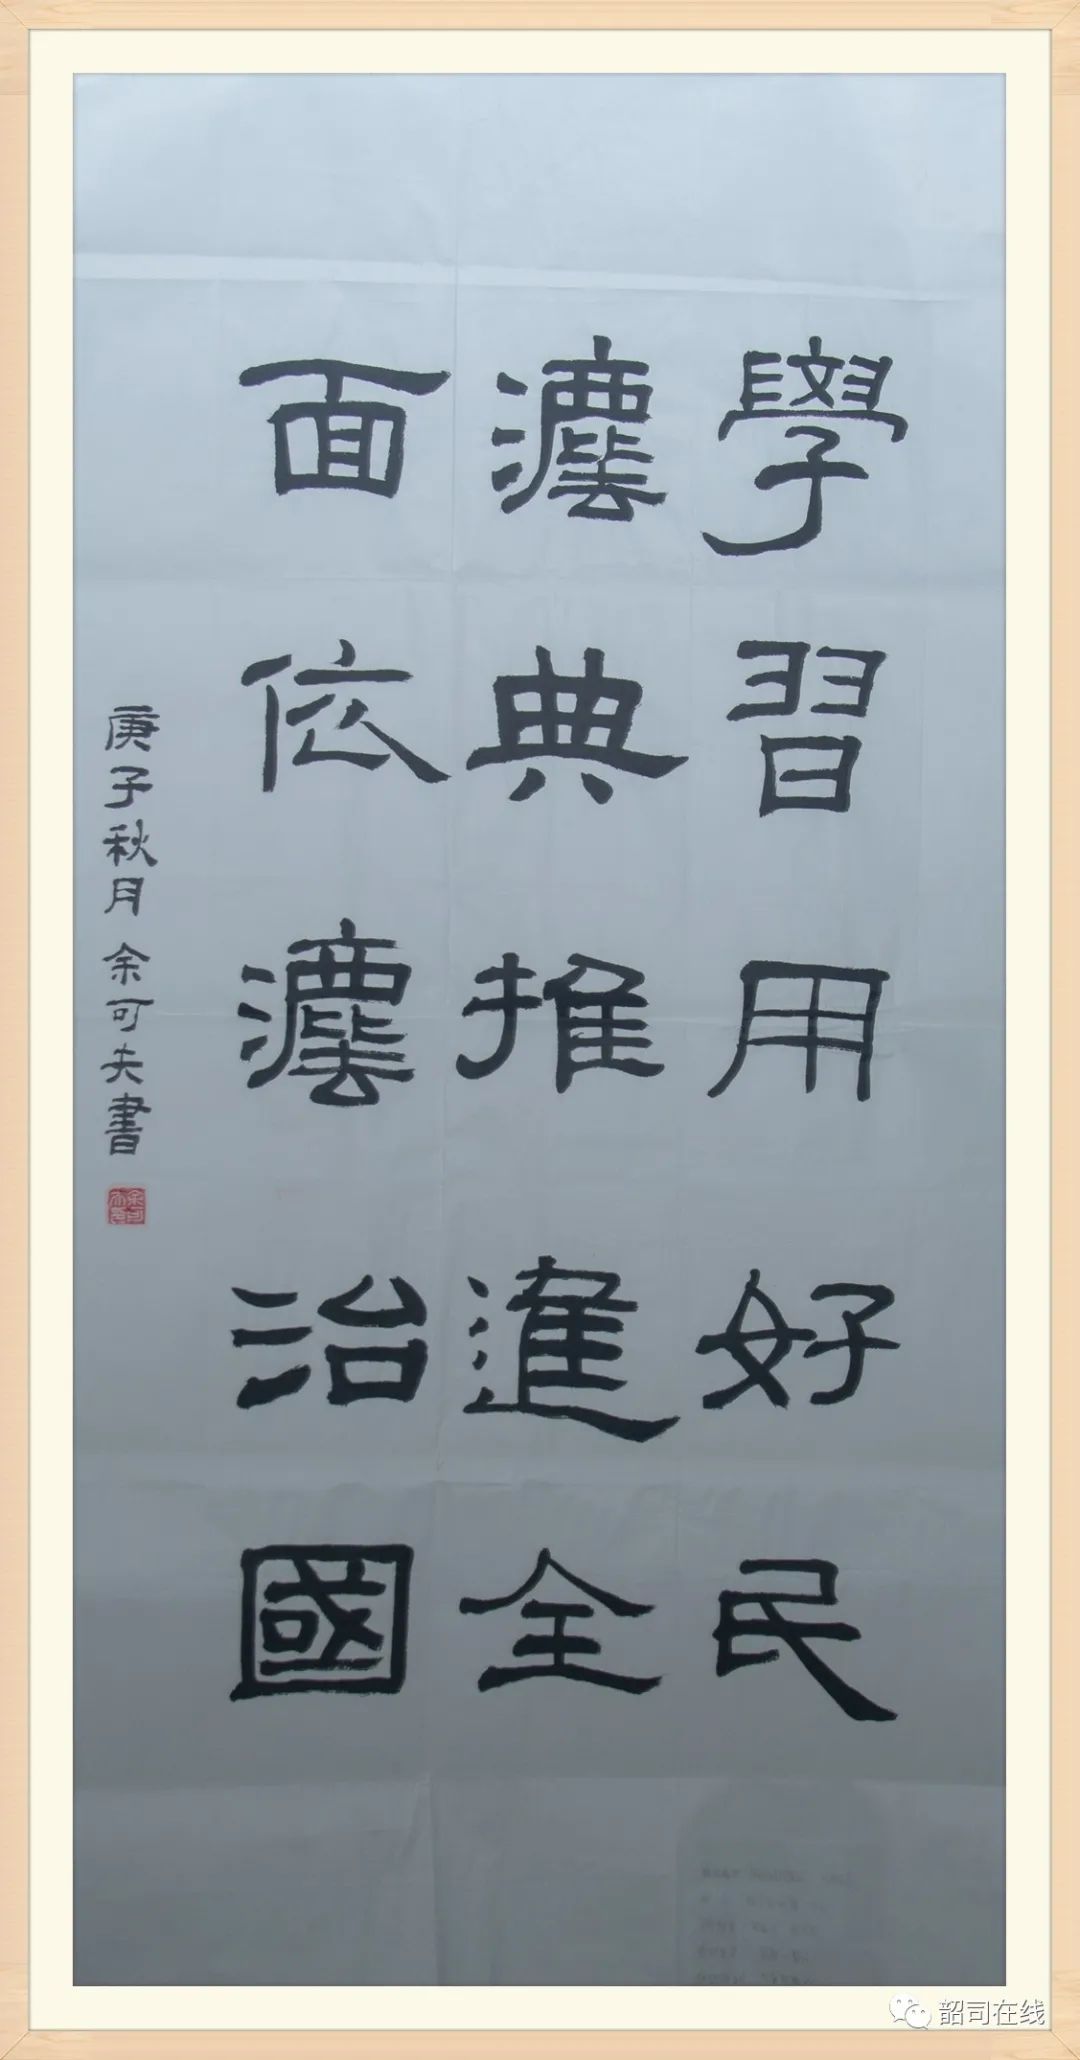 學習用好民
灋典推進全
面依灋治國
庚子秋月 余可夫書
韶司在线